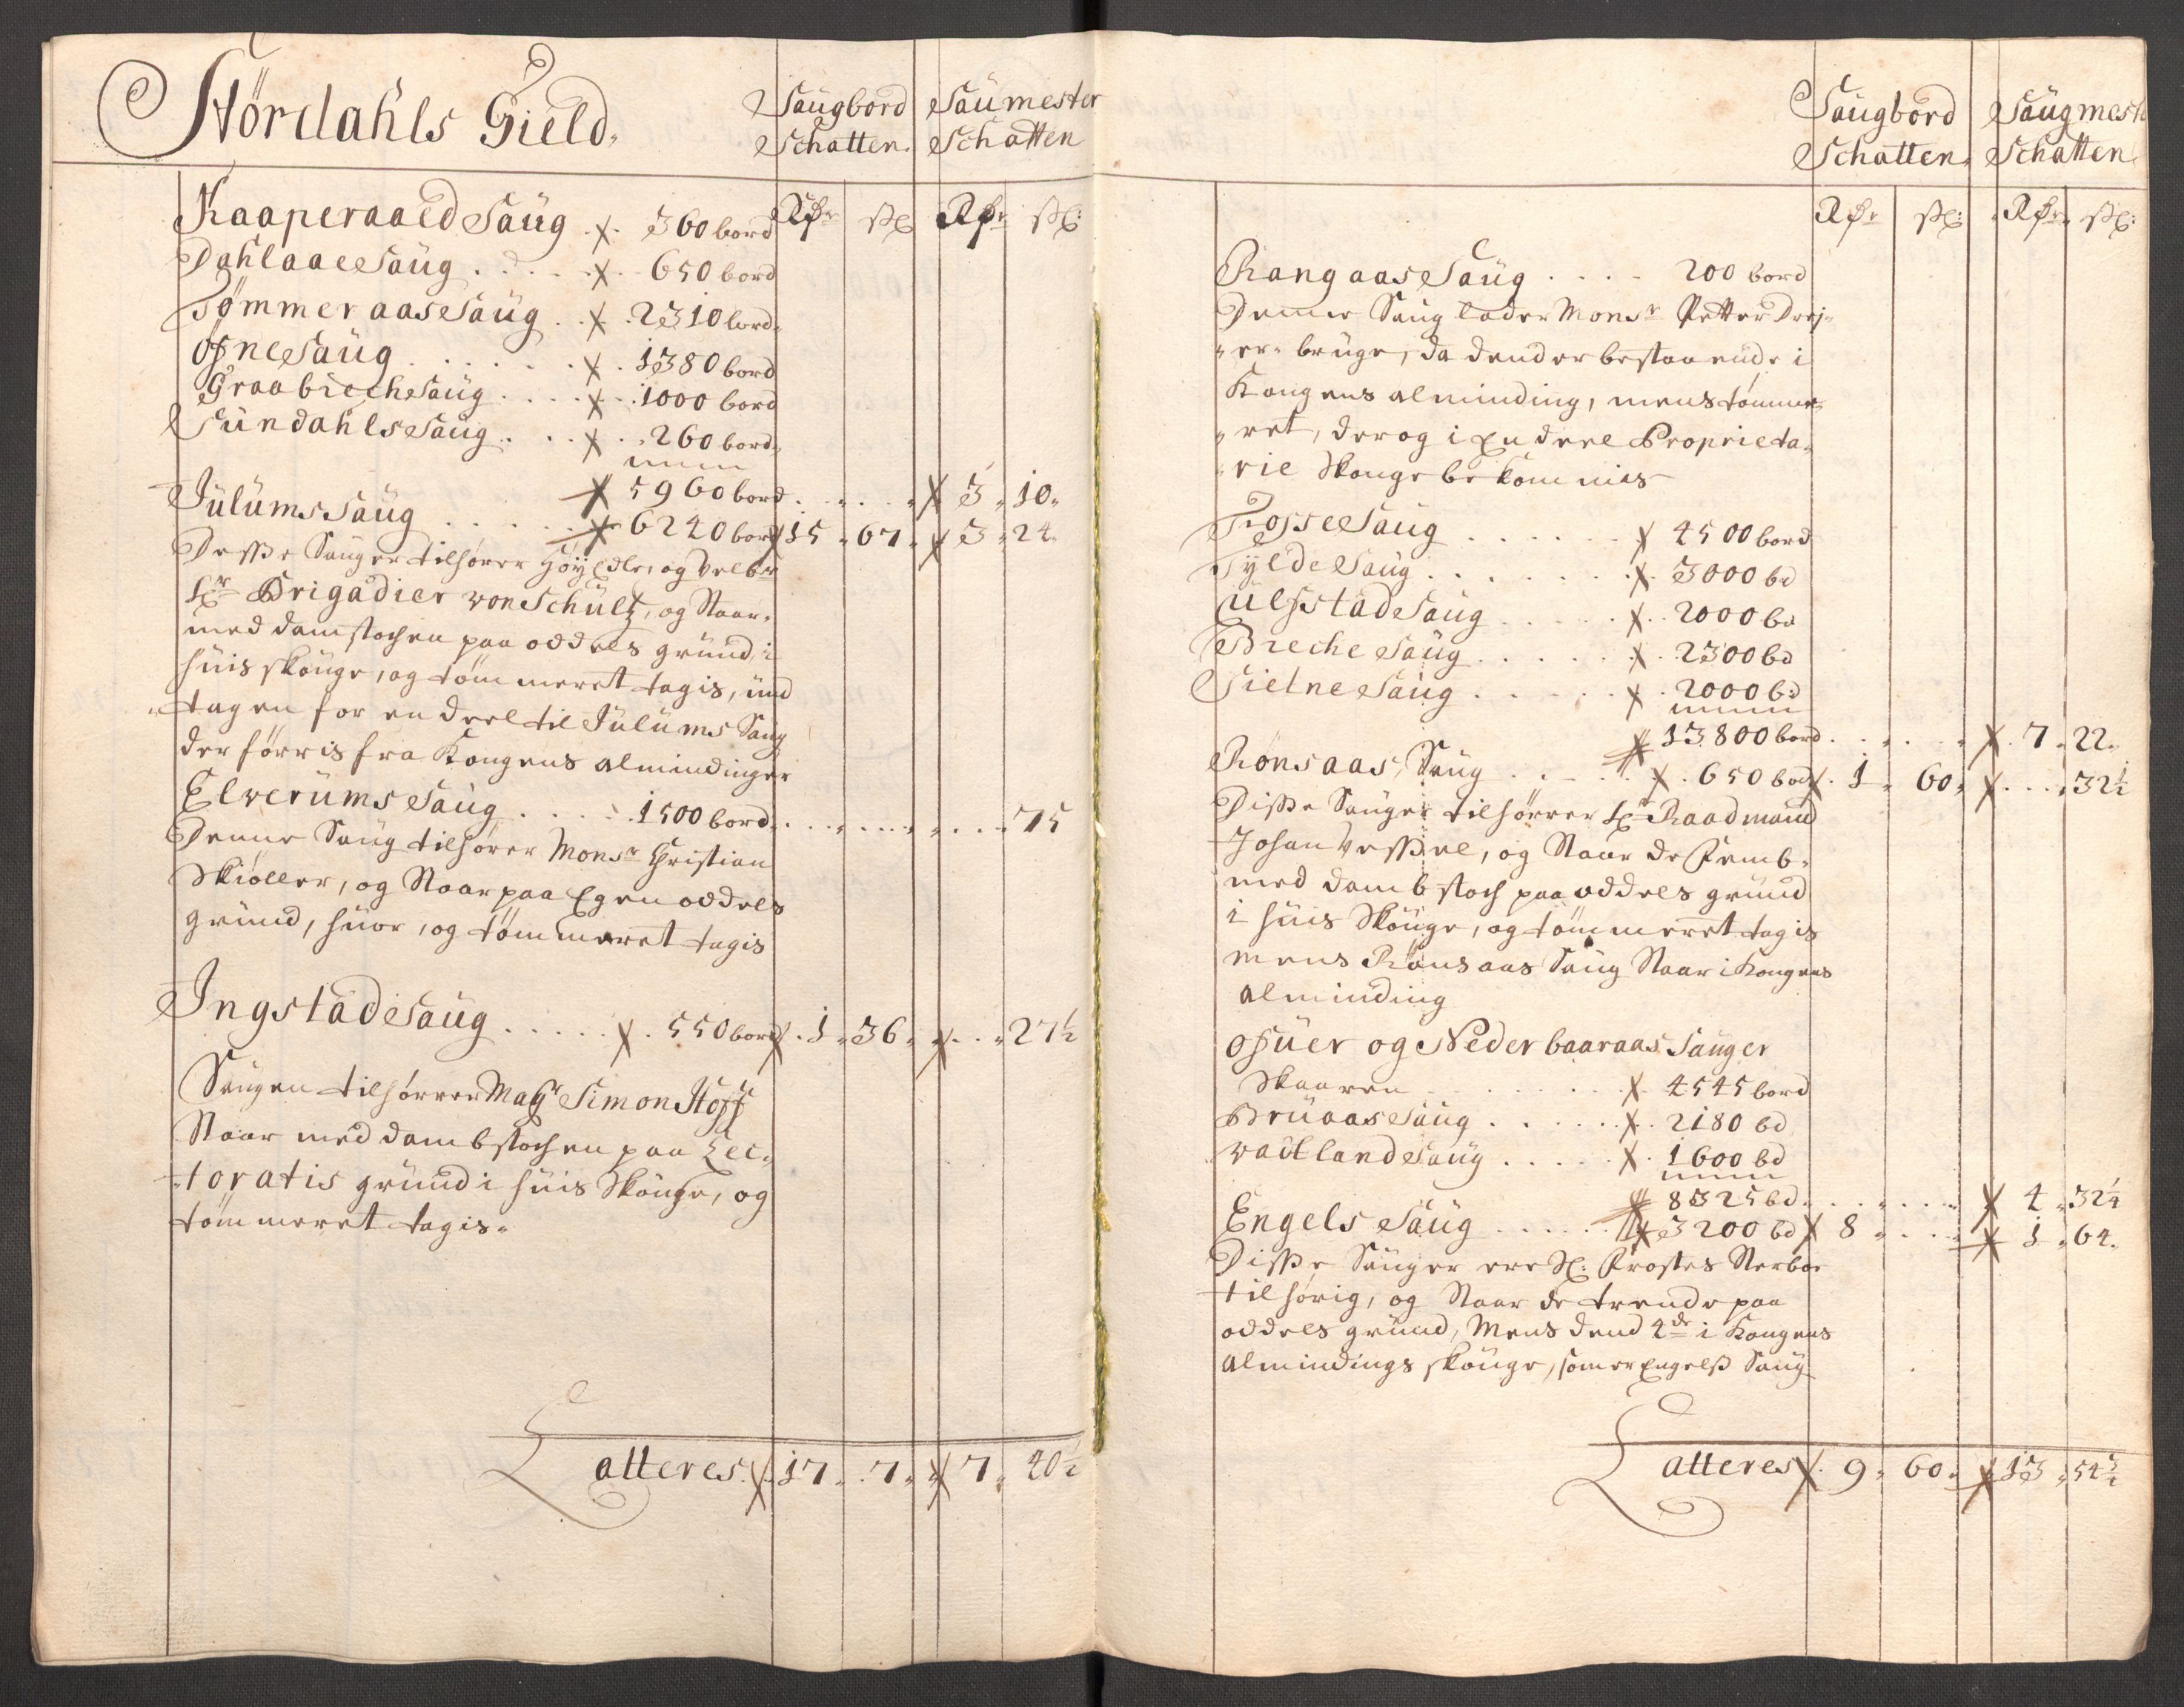 Stördahls Gield,
Saugbord Schatten. Saumester Schatten
Rdr ß Rdr ß
Kaaperaaed Saug 360 bord
Dahlaae Saug 650 bord
Tømmeraas Saug 2310 bord
Ofne Saug 1380 bord
Graabrech Saug 1000 bord
Sundahls Saug 260 bord
5960 bord 3 10
Julums Saug 6240 bord 15 67 3 24
Desse Sauger tilhører HöyEdle, og Velbr
Hr Brigadier von Schultz, og Staar
med damstochen paa oddels grund, i
huis skouge, og tømmeret tagis, und
tagen for en deel til Julums Saug
der førris fra Kongens alminding
Elverums Saug 1500 bord 75
Denne Saug tilhører Monsr Christian
Skiøller, og Staar paa Egen oddels
grund, huor, og tømmeret tagis
Ingstad Saug 550 bord 1 36 27½
Saugen tilhörrer Magr Simon Hoff
Staar med dambstochen paa Lec-
toratis grund i huis Skouge, og
tømmeret tagis.
Latteres 17 7 7 40½
Saugbord Schatten. Saugmest Schatten
Rdr ß Rdr ß
Rangaas Saug 200 bord
Denne Saug lader Monsr Petter Drej-
er bruge, da dend er bestaaende i
Kongens alminding, mens tømme-
ret, der og i En deel Proprieta-
rie Skouge bekommis
Fosse Saug 4500 bord
Tylde Saug 3000 bd
Ulfstad Saug 2000 bd
Breche Saug 2300 bd
Sielne Saug 2000 bd
13800 bord 7 22
Rönsaas Saug 650 bod 1 60 32½
Disse Sauger tilhörrer Hr Raadmand
Johan Vessel, og Staar de Femb
med dambstoch paa oddels grund
i huis Skouge, og tømmerret tagis
mens Rönsaas Saug Staar i Kongens
alminding
ofuer og Neder baaraas Sauger
Skaaren 4545 bord
Bruaas Saug 2180 bd
vadtland Saug 1600 bd
8325 bd 4 32¼
Engels Saug 3200 bd 8 1 64
Disse Sauger ere Sl: Prostes Sterboe
tilhörig, og Staar de trende paa
oddels grund, Mens dend 4de i Kongens
almindings skouge, som er Engelss Saug
Latteres 9 60 13 54¾